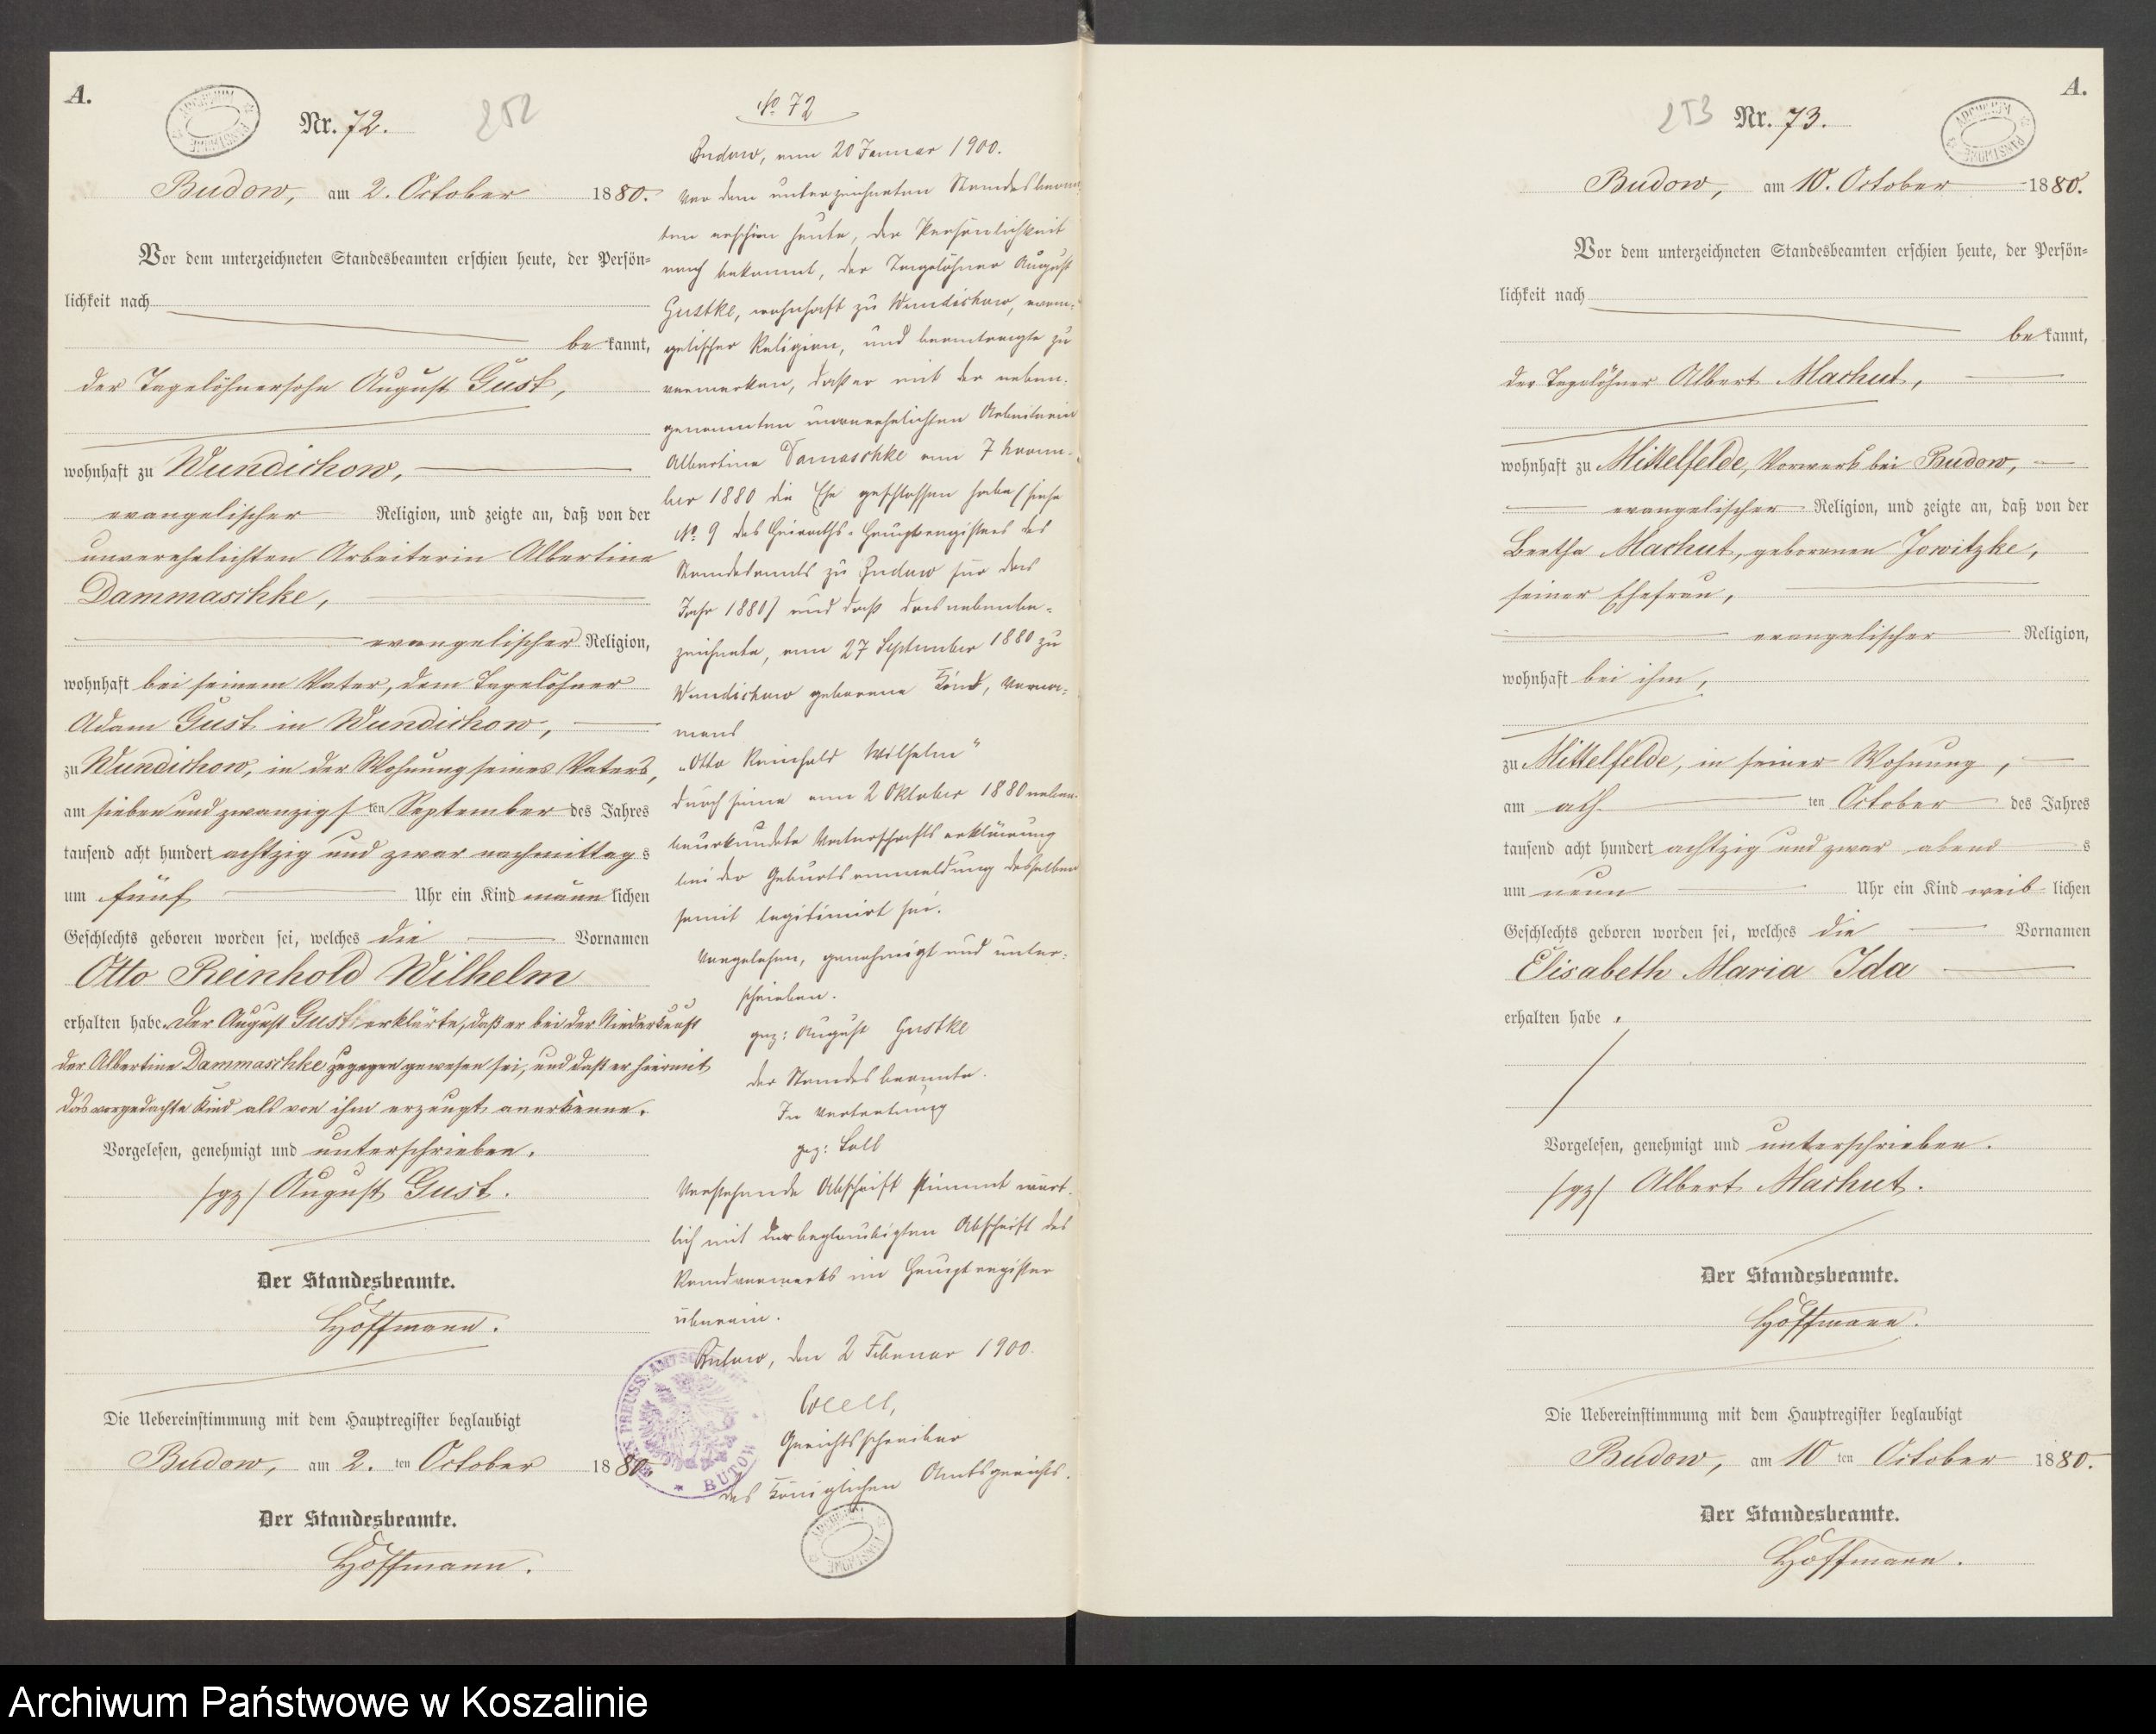 A.
Nr. 72.
252
Budow, am 2. October 1880.
Vor dem unterzeichneten Standesbeamten erschien heute, der Persön-
lichkeit nach
be kannt,
der Tagelöhnersohn August Gust,
wohnhaft zu Wundichow,
evangelischer Religion, und zeigte an, daß von der
unverehelichten Arbeiterin Albertine
Dammaschke,
evangelischer Religion,
wohnhaft bei seinem Vater, dem Tagelöhner
Adam Gust in Wundichow,
zu Wundichow, in der Wohnung seines Vaters,
am sieben und zwanzigs ten September des Jahres
tausend acht hundert achtzig und zwar nachmittag s
um fünf Uhr ein Kind männ lichen
Geschlechts geboren worden sei, welches die Vornamen
Otto Reinhold Wilhelm
erhalten habe. Der August Gust erklärte, daß er bei der Niederkunft
der Albertine Dammaschke zugegen gewesen sei, und daß er hiermit
das vorgedachte Kind als von ihm erzeugt anerkenne.
Vorgelesen, genehmigt und unterschrieben.
/gz/ August Gust.
Der Standesbeamte.
Hoffmann.
Die Uebereinstimmung mit dem Hauptregister beglaubigt
Budow, am 2. ten October 1880.
Der Standesbeamte.
Hoffmann.
No 72
Budow, am 20 Januar 1900.
Vor dem unterzeichneten Standesbeam
ten erschien heute, der Persönlichkeit
nach bekannt, der Tagelöhner August
Gustke, wohnhaft zu Wundichow, evan-
gelischer Religion, und beantragte zu
vermerken, daß er mit der neben-
genannten unverehelichten Arbeiterin
Albertine Damaschke am 7 Novem-
ber 1880 die Ehe geschlossen habe (siehe
No. 9 des Heiraths-Hauptregisters des
Standesamts zu Budow für das
Jahr 1880) und daß das nebenbe-
zeichnete, am 27 September 1880 zu
Wundichow geborene Kind, Vorna-
mens
"Otto Reinhold Wilhelm"
durch seine am 2 Oktober 1880 neben-
beurkundete Vaterschaftserklärung
bei der Geburtsanmeldung desselben
somit legitimirt sei.
Vorgelesen, genehmigt und unter-
schrieben.
gez: August Gustke
der Standesbeamte.
In Vertretung
gez:
Vorstehende Abschrift stimmt wört-
lich mit der beglaubigten Abschrift des
Randvermerks im Hauptregister
überein.
Bütow, den 2 Februar 1900.
Gerichtsschreiber
des Königlichen Amtsgerichts.
PREUSS. AMTSG
* BÜTOW
ARCHIWUM
PAŃSTWOWE
A.
253
Nr. 73.
ARCHIWUM
PAŃSTWOWE
Budow, am 10. October 1880.
Vor dem unterzeichneten Standesbeamten erschien heute, der Persön-
lichkeit nach
be kannt,
der Tagelöhner Albert Machut,
wohnhaft zu Mittelfelde, Vorwerk bei Budow,
evangelischer Religion, und zeigte an, daß von der
Bertha Machut, geborenen Jowitzke,
seiner Ehefrau,
evangelischer Religion,
wohnhaft bei ihm,
zu Mittelfelde, in seiner Wohnung,
am ach ten October des Jahres
tausend acht hundert achtzig und zwar abend s
um neun Uhr ein Kind weib lichen
Geschlechts geboren worden sei, welches die Vornamen
Elisabeth Maria Ida
erhalten habe.
Vorgelesen, genehmigt und unterschrieben.
/gz/ Albert Machut.
Der Standesbeamte.
Hoffmann.
Die Uebereinstimmung mit dem Hauptregister beglaubigt
Budow, am 10 ten October 1880.
Der Standesbeamte.
Hoffmann.
Archiwum Państwowe w Koszalinie